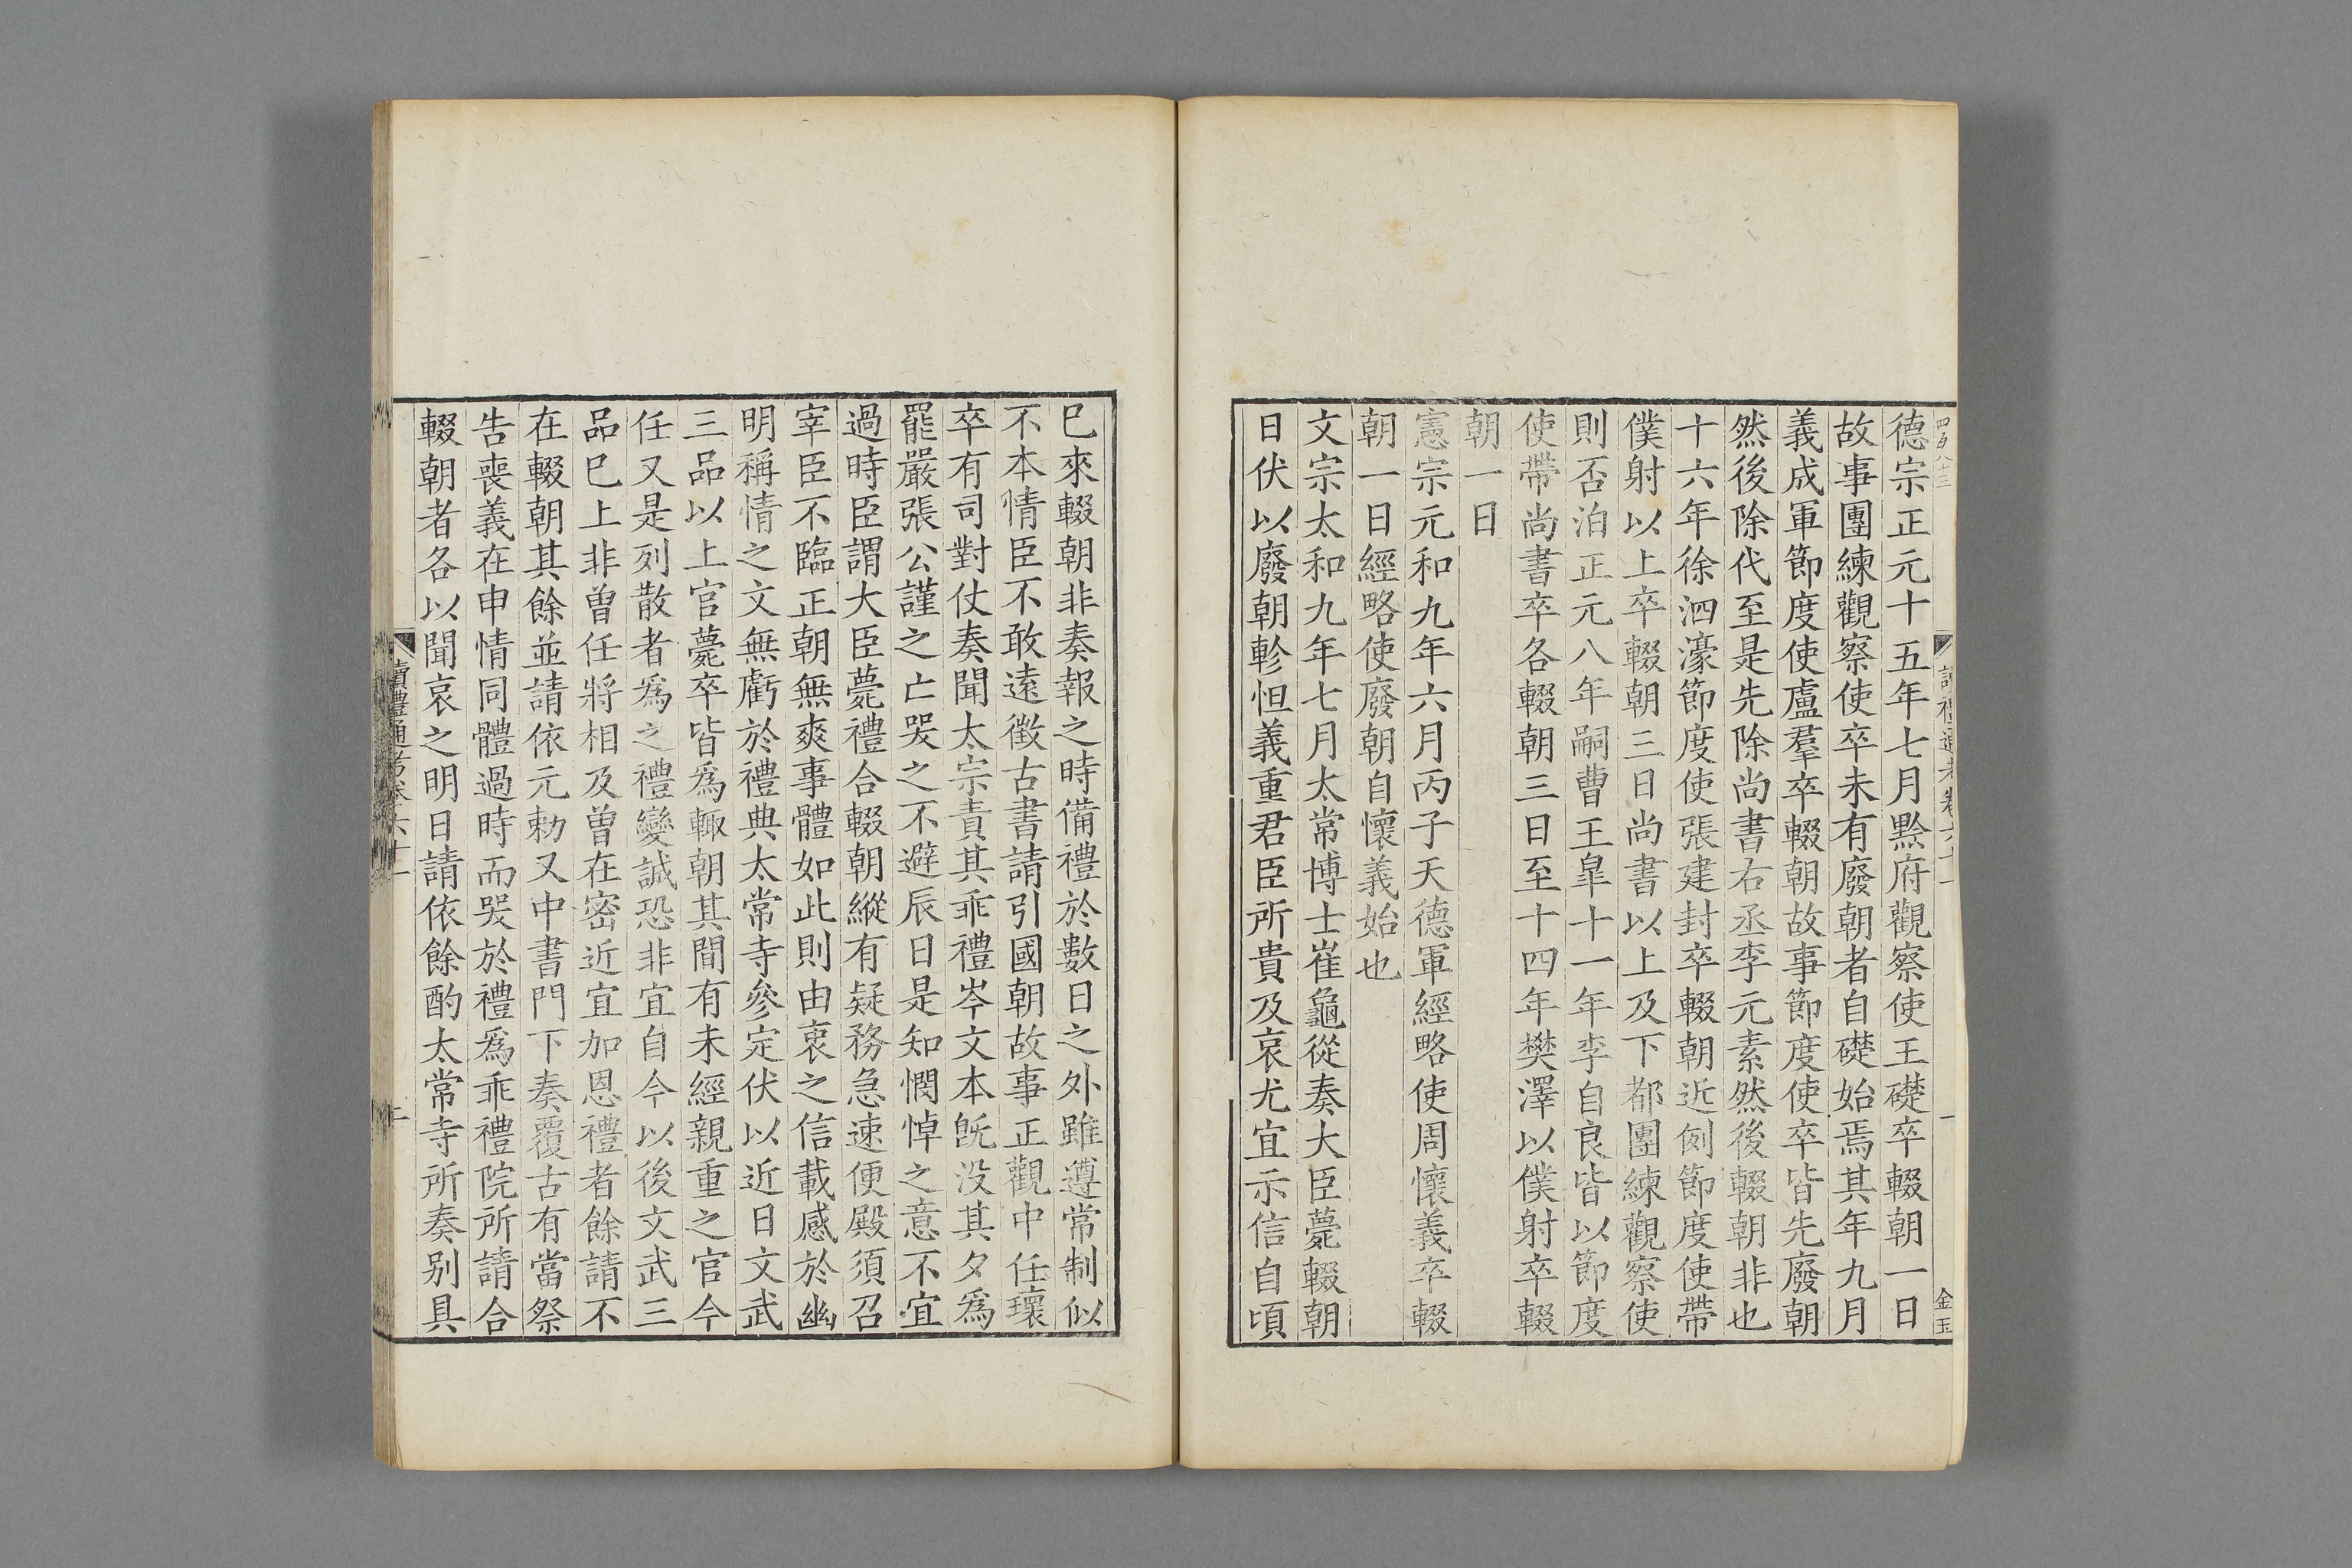 德宗正元十五年七月黔府觀察使王礎卒輟朝一日
故事團練觀察使卒未有廢朝者自礎始焉其年九月
義成軍節度使盧羣卒輟朝故事節度使卒皆先廢朝
然後除代至是先除尚書右丞李元素然後輟朝非也
十六年徐泗濠節度使張建封卒輟朝近例節度使帶
僕射以上卒輟朝三日尚書以上及下都團練觀察使
則否洎正元八年嗣曹王皐十一年李自良皆以節度
使帶尚書卒各輟朝三日至十四年樊澤以僕射卒輟
朝一日
憲宗元和九年六月丙子天德軍經略使周懷義卒輟
朝一日經略使廢朝自懷義始也
文宗太和九年七月太常博士崔龜從奏大臣薨輟朝
日伏以廢朝軫怛義重君臣所貴及哀尤宜示信自頃
已來輟朝非奏報之時備禮於數日之外雖遵常制似
不本情臣不敢遠徵古書請引國朝故事正觀中任瓌
卒有司對仗奏聞太宗責其乖禮岑文本旣没其夕爲
罷嚴張公謹之亡哭之不避辰日是知憫悼之意不宜
過時臣謂大臣薨禮合輟朝縱有疑務急速便殿須召
宰臣不臨正朝無爽事體如此則由衷之信載感於幽
明稱情之文無虧於禮典太常寺參定伏以近日文武
三品以上官薨卒皆爲輙朝其間有未經親重之官今
任又是列散者爲之禮變誠恐非宜自今以後文武三
品已上非曾任將相及曾在密近宜加恩禮者餘請不
在輟朝其餘並請依元勑又中書門下奏覆古有當祭
告喪義在申情同體過時而哭於禮爲乖禮院所請合
輟朝者各以聞哀之明日請依餘酌太常寺所奏别具
四百八十三
讀禮通考卷六十一
一
金玉
讀禮通考卷六十一